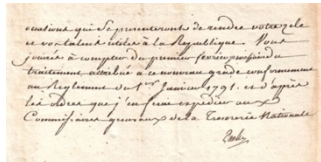 occasions qui se presenteront de rendre votre zele
et vos talens utiles à la Republique. Vous
jouirés à compter du premier fevrier prochain du
traitement attribué à ce nouveau grade conformement
au Reglement du 1er Janvier 1791. et d'après
les ordres que j'en ferai expedier aux
Commissaires generaux de la Tresorerie Nationale